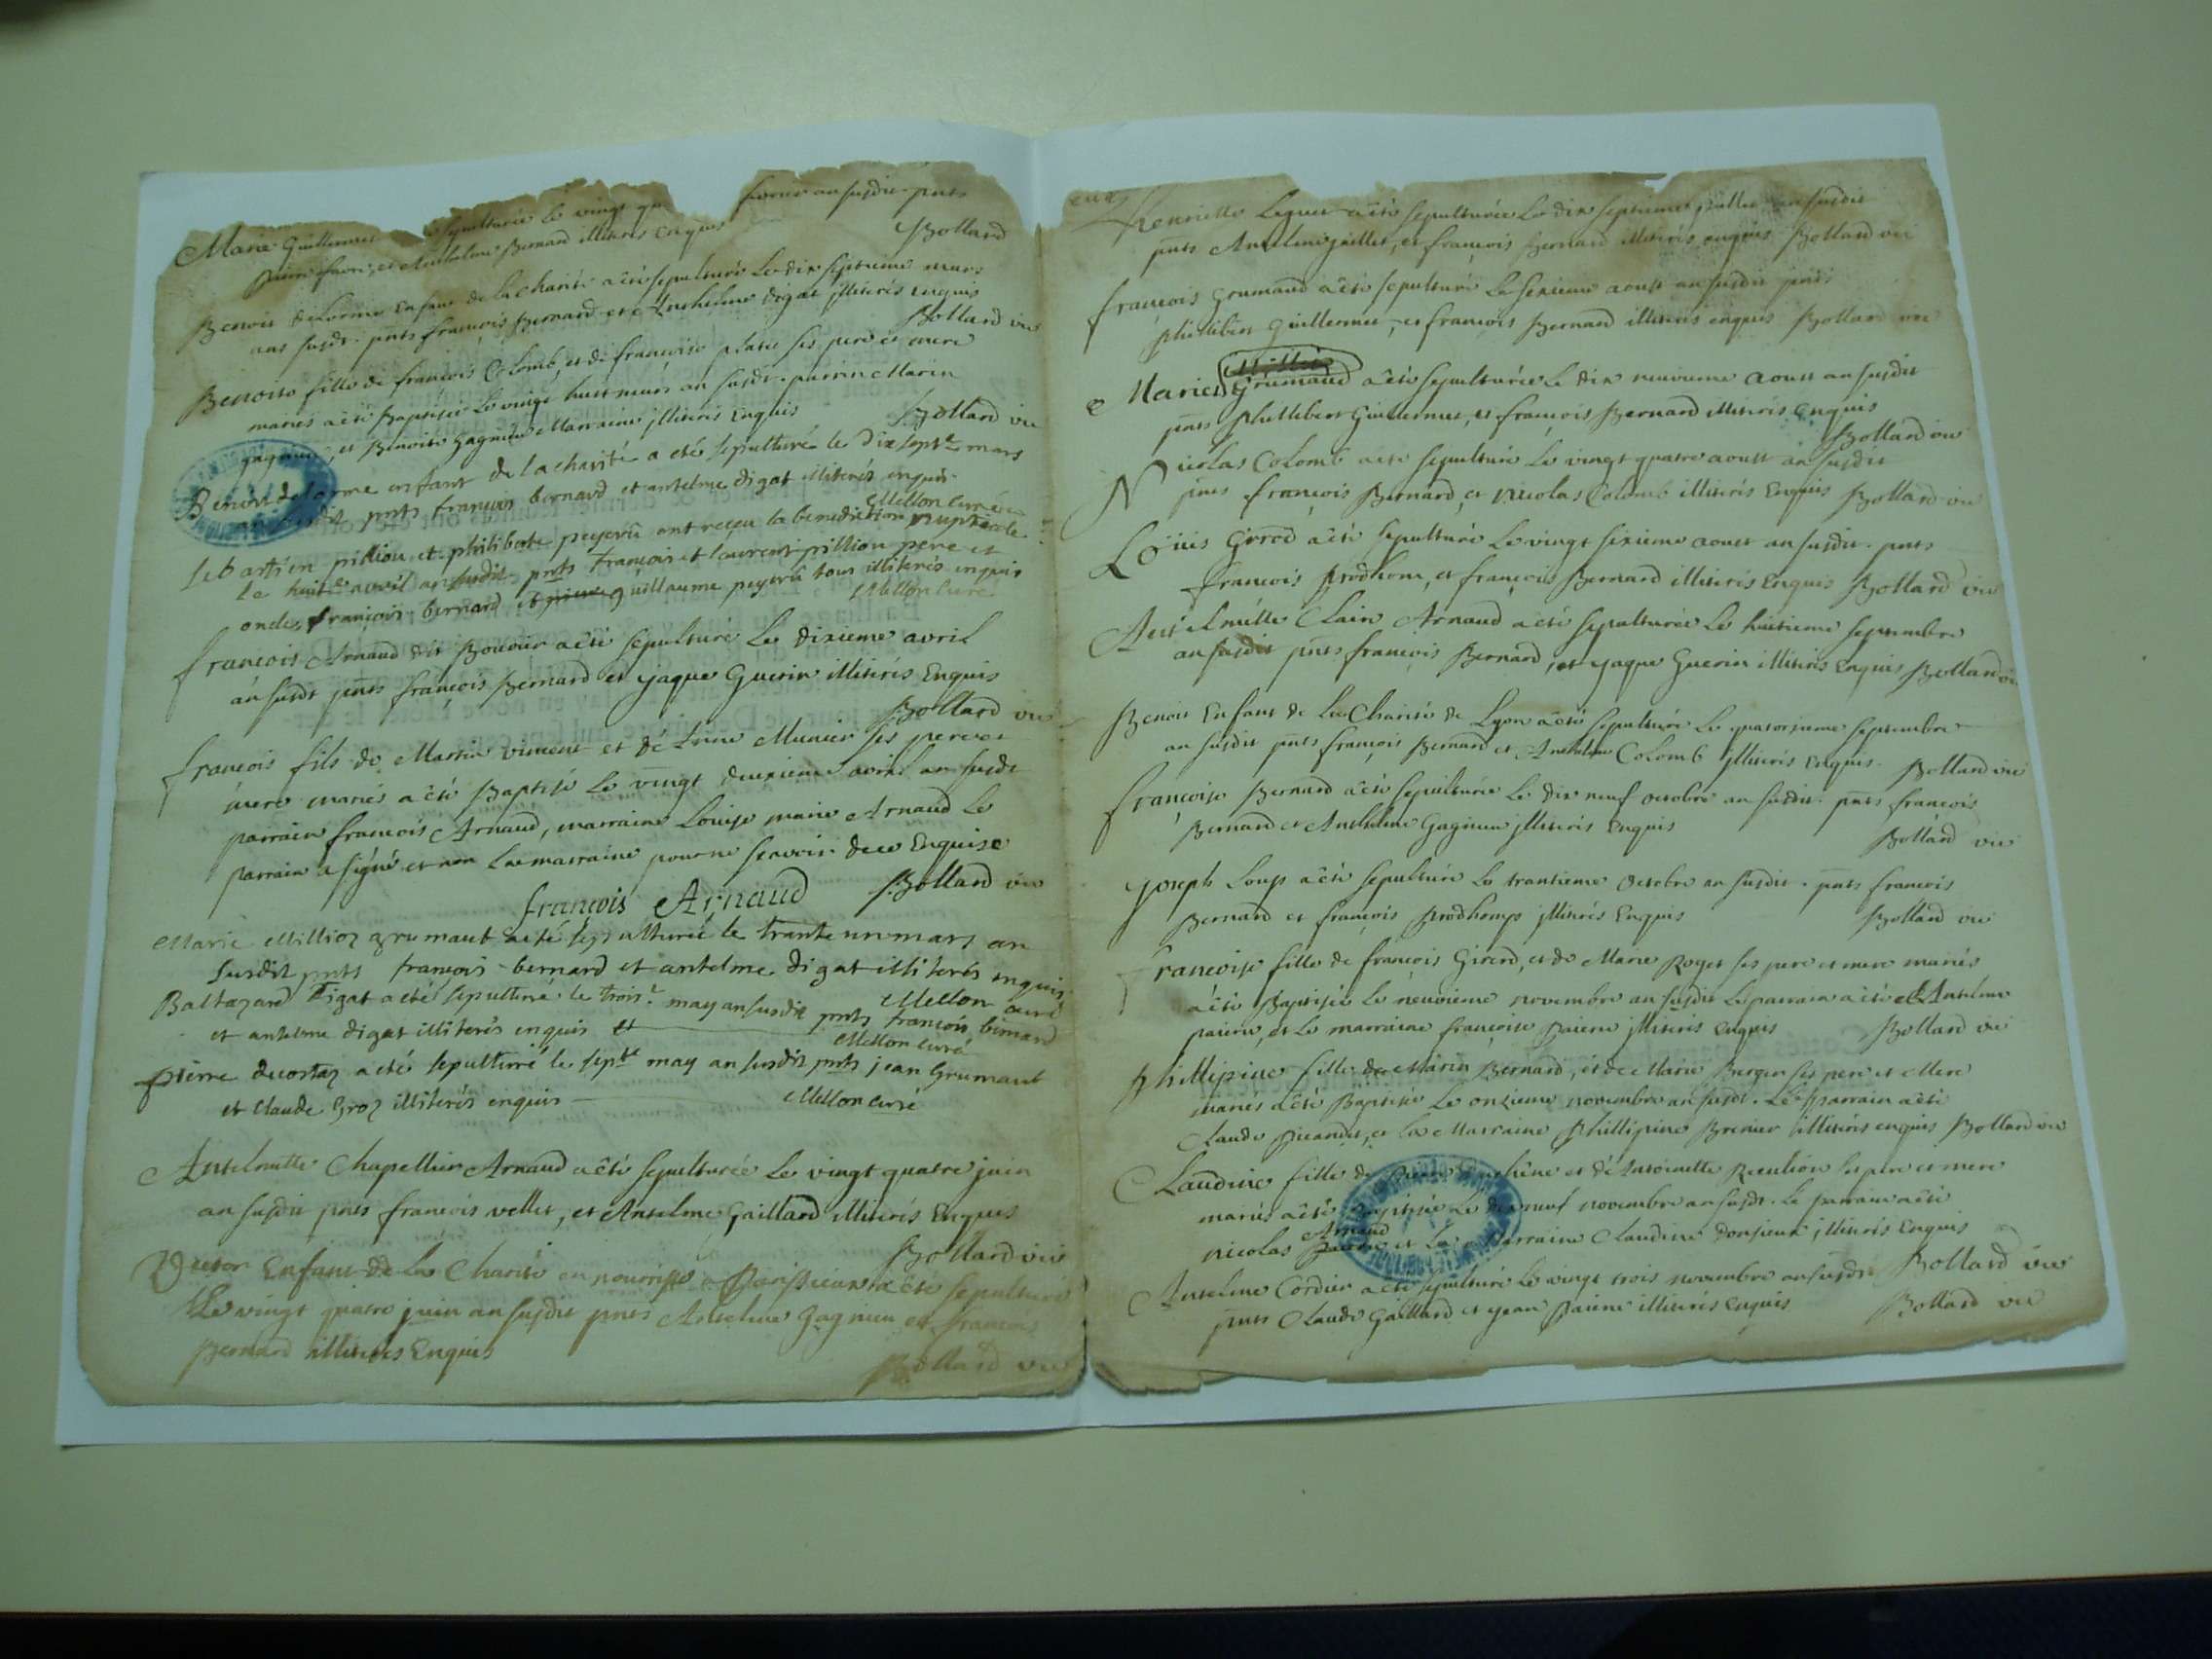 Marie Guillermet sepulturée le vingt qu fevrier an susdit pnts
pierre favre, et Anthelme Bernard illiterés enquis Bollard
Benoit delorme Enfant de la charité a été sepulturé le dix septieme mars
ans susdt. pnts françois Bernard et Anthelme digat illiterés enquis
Bollard vic
Benoite fille de françois Colomb, et de françoise platet ses pere et mere
mariés a été Baptisée le vingt huit mars an susdt. parrin Marin
gagnieu, et Benoite gagnieu Marraine illiterés Enquis Bollard vic
Benoit delorme enfant de la charité a eté sepulturé le dix septe mars
an susdit pnts françois bernard et antelme digat illiterés enquis
Mellon curé
Sebastien pillion et philiberte peyerû ont reçeu la benediction nuptiale
le huite avril an susdit pnts françois et laurent pillion pere et
oncle, françois bernard et guillaume peyerû tous illiterés enquis
Mellon curé
françois Arnaud dit Bouvier a été sepulturé le dixieme avril
an susdt pnts françois Bernard et jaque Guerin illiterés Enquis
Bollard vic
françois fils de Martin vincent et de Munier ses pere et
mere mariés a été Baptisé le vingt deuxieme avril an susdt
parrain francois Arnaud, marraine Louise marie Arnaud le
parrain a signé et non la marraine pour ne scavoir de ce Enquise
françois Arnaud Bollard vic
Marie Millioz grumaut a eté sepulturée le trante un mars an
susdit pnts françois bernard et antelme digat illiterés enquis
Mellon curé
Baltazard digat a eté sepulturé le troise may an susdit pnts françois bernard
et antelme digat illiterés enquis Mellon curé
pierre decortaz a eté sepulturé le septe may an susdit pnts jean Grumaut
et claude groz illiterés enquis Mellon curé
Antelmette Chapellier Arnaud a été sepulturée le vingt quatre juin
an susdit pnts francois vellet, et Antelme Gaillard illiterés Enquis
Bollard vic
Victor Enfant de la Charité en nourrisse a Parissieux a été sepulturé
Le vingt quatre juin an susdit pnts Anthelme gagnieu et francois
Bernard illiterés Enquis
Bollard vic
henriette Leguet a été sepulturée le dix septieme juillet an susdit
pnts Anthelme juillet, et françois Bernard illiterés enquis Bollard vic
françois Grumaud a été sepulturé le sixieme aoust an susdit pnts
phillibert Guillermet, et françois Bernard illiterés enquis Bollard vic
Marie Grumaud a été sepulturée le dix neuvieme aoust an susdit
pnts Phillibert Guillermet, et françois Bernard illiterés Enquis
Bollard vic
Nicolas Colomb a été sepulturé le vingt quatre aoust an susdit
pnts françois Bernard, et Nicolas Colomb illiterés Enquis Bollard vic
Loüis Girrod a été sepulturé le vingt sixieme aoust an susdit. pnts
francois Prodhom, et françois Bernard illiterés Enquis Bollard vic
Antelmette Clair Arnaud a été sepulturée le huitieme septembre
an susdit pnts françois Bernard, et jaque Guerin illiterés Enquis Bollard vic
Benoit Enfant de la Charité de Lyon a été sepulturé le quatorzieme septembre
an susdit pnts françois Bernard et Anthelme Colomb illiterés enquis. Bollard vic
françoise Bernard a été sepulturée le dix neuf octobre an susdit. pnts françois
Bernard et Anthelme Gagnieu illiterés Enquis
Bollard vic
joseph Loup a été sepulturé le trantieme octobre an susdit. pnts francois
Bernard et françois Prodhomps illiterés Enquis Bollard vic
francoise fille de françois Girerd, et de Marie Roget ses pere et mere mariés
a été Baptisée le neuvieme novembre an susdit le parrain a été Antelme
paierne, et la marraine françoise paierne illiterés enquis Bollard vic
phillipine fille de Marin Bernard, et de Marie Berger ses pere et Mere
mariés a été Baptisée le onzieme novembre an susdt. Le parrain a été
claude picandet, et la Marraine Phillipine Brenier illiterés enquis Bollard vic
Claudine fille de et de Antoinette ses pere et mere
mariés a été Baptisée le dix neuf novembre an susdt. Le parrain a été
Arnaud
nicolas et la marraine Claudine donjeux illiterés Enquis
Bollard vic
Antelme Cordier a été sepulturé le vingt trois novembre an susdt
pnts Claude Gaillard et jean Paierne illiterés Enquis Bollard vic